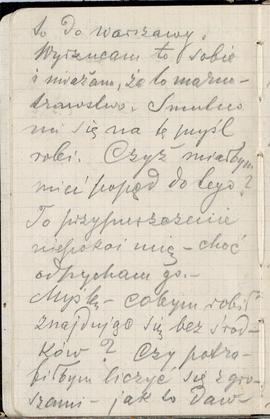 to do Warszawy.
Wyrzucam to sobie
i uważam, że to marno-
trawstwo. Smutno
mi się na tę myśl
robi. Czyż miałbym
mieć popęd do tego?
To przypuszczenie
niepokoi mię – choć
odpycham go. –
Myślę – co bym robił
znajdując się bez środ-
ków? Czy potra-
fiłbym liczyć się z gro-
szami – jak to daw-